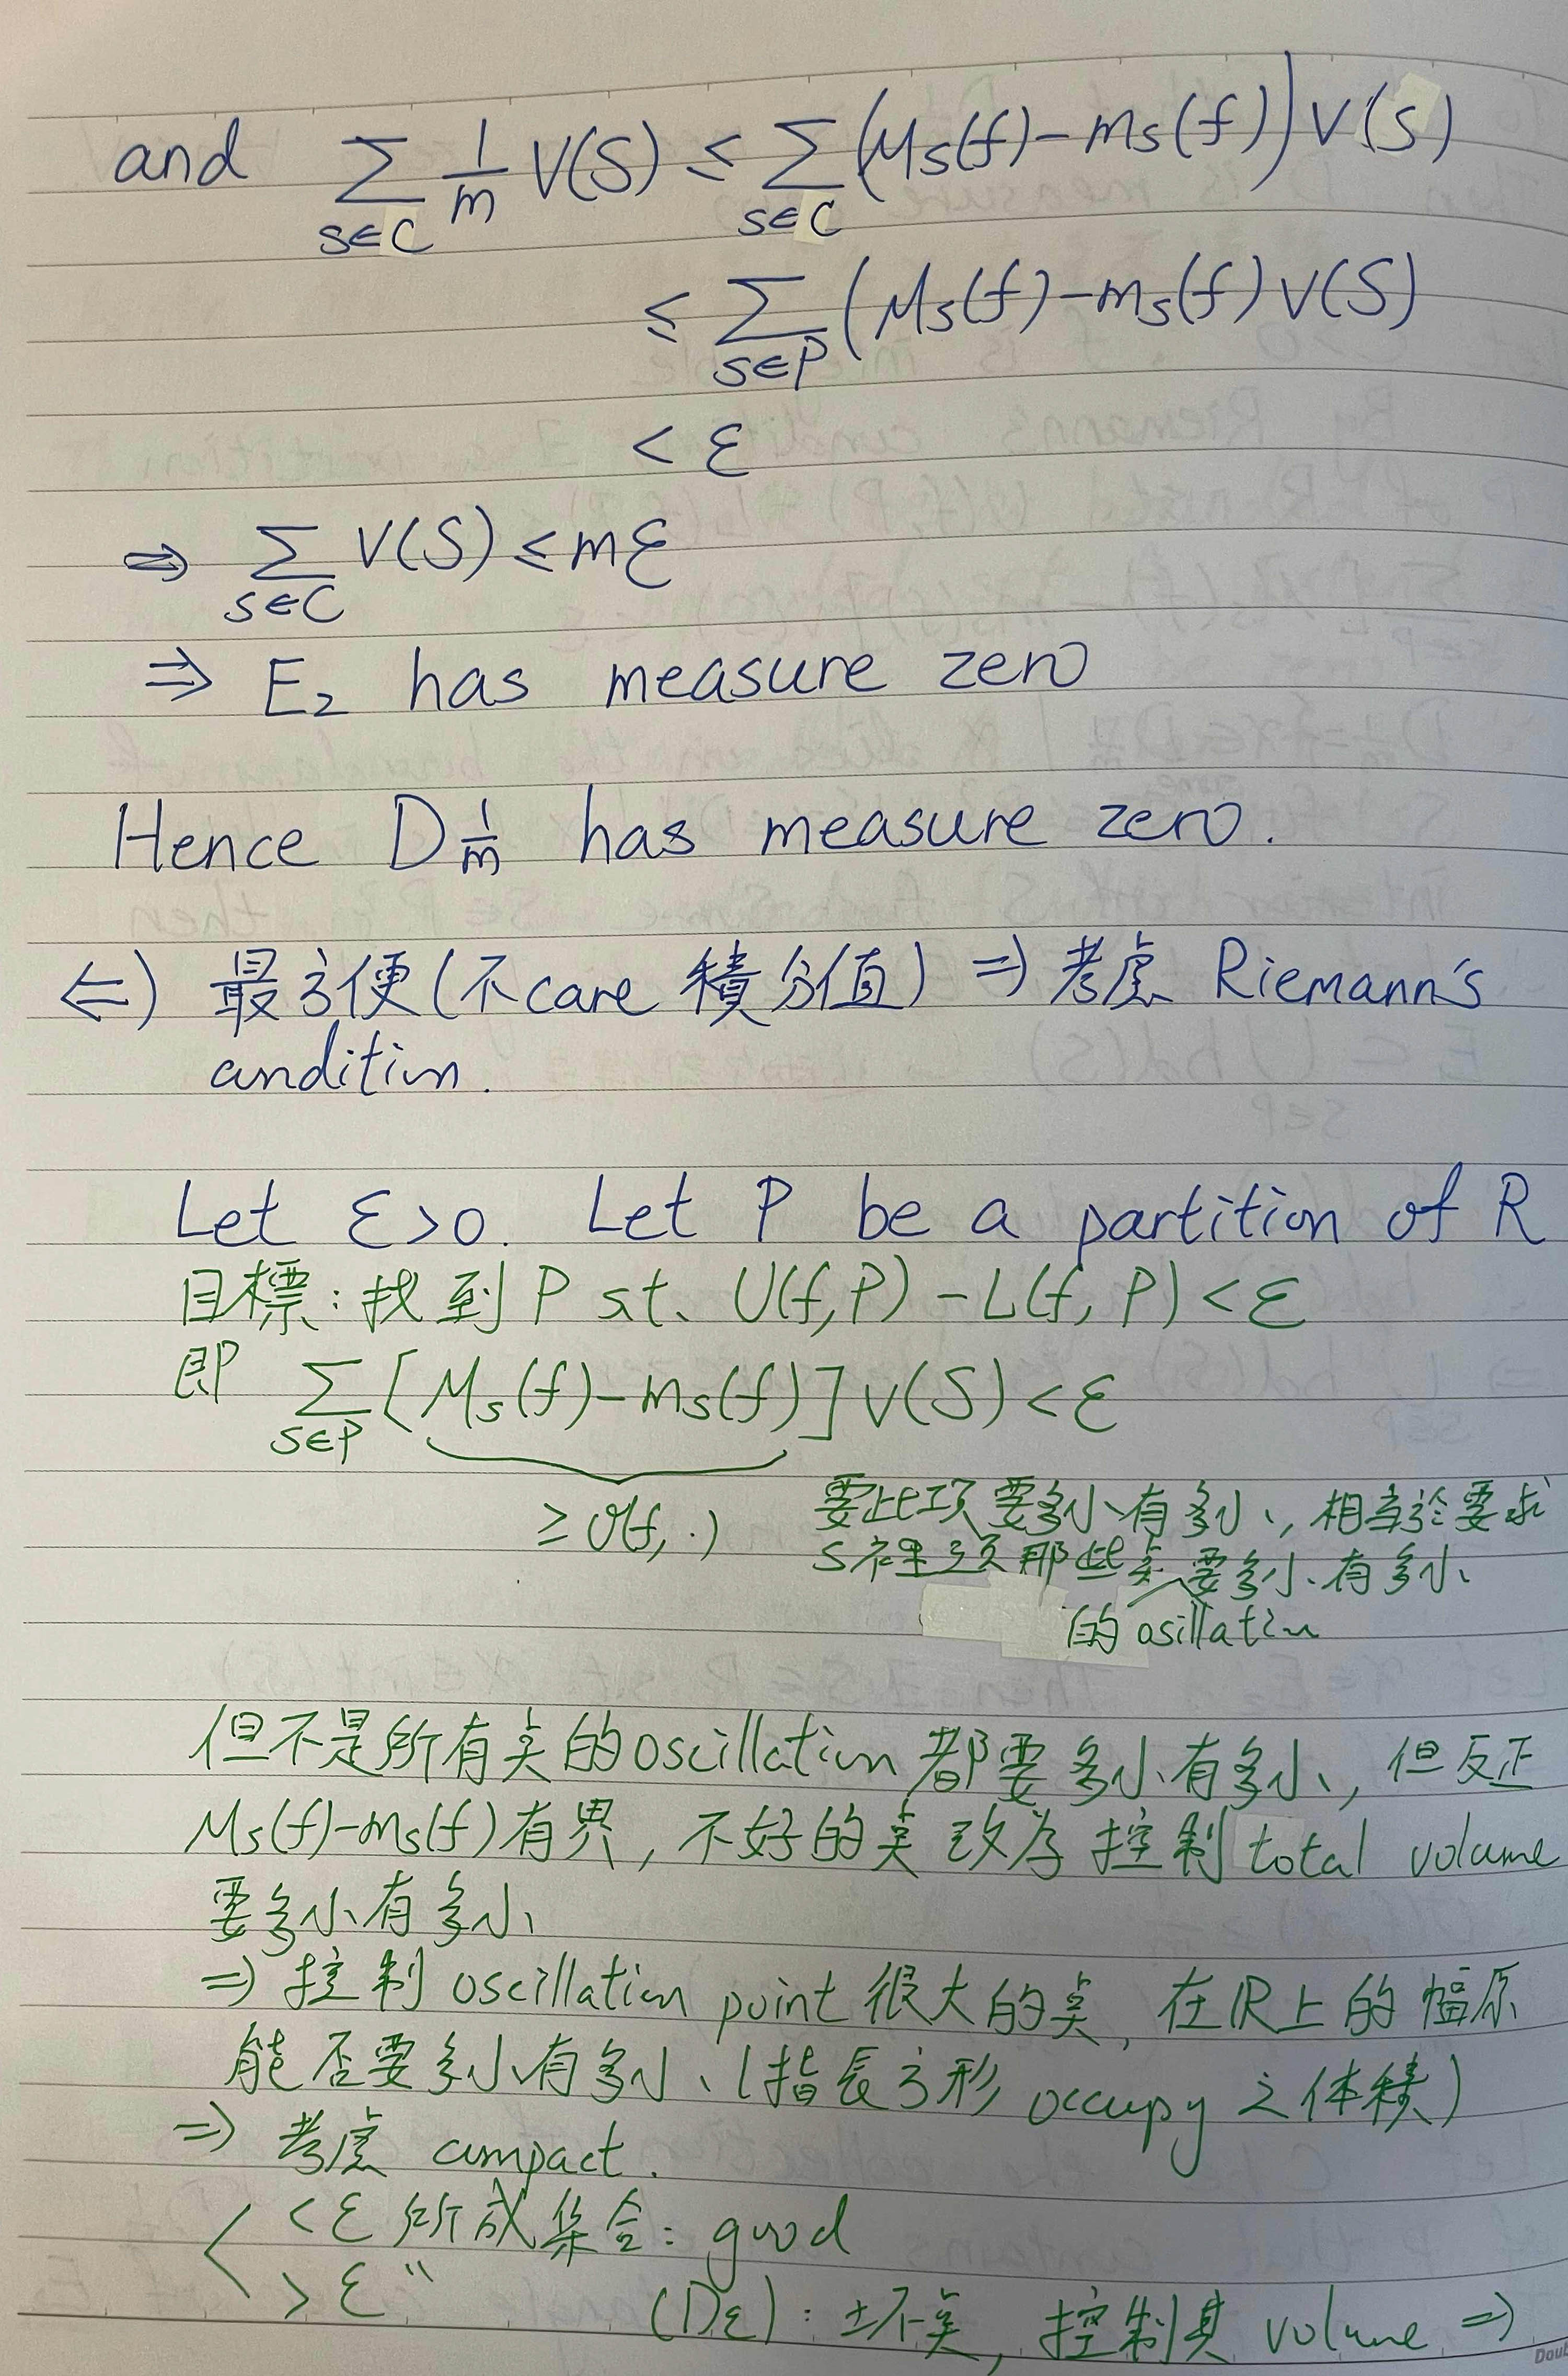 and ∑_{S∈C} 1/m V(S) ≤ ∑_{S∈C} (M_S(f)-m_S(f)) V(S)
≤ ∑_{S∈P} (M_S(f)-m_S(f) V(S)
< ε
⇒ ∑_{S∈C} V(S) ≤ mε
⇒ E₂ has measure zero
Hence D_{1/m} has measure zero.
⇐) 最方便(不care 積分值) ⇒ 考慮 Riemann's
condition.
Let ε>0. Let P be a partition of R
目標:找到 P s.t. U(f,P) - L(f,P) < ε
即 ∑_{S∈P} [M_S(f)-m_S(f)] V(S) < ε
≥ O(f,·) 要此項要多小有多小,相當於要求
S裡頭那些点要多小有多小
的 osillation
但不是所有点的oscillation都要多小有多小,但反正
M_S(f)-m_S(f)有界,不好的点改為控制 total volume
要多小有多小
⇒ 控制 oscillation point 很大的点,在R上的幅原
能否要多小有多小(指長方形 occupy 之体積)
⇒ 考慮 compact.
< ε 所成集合: good
> ε "
(D_ε): 坏点,控制其 volume ⇒